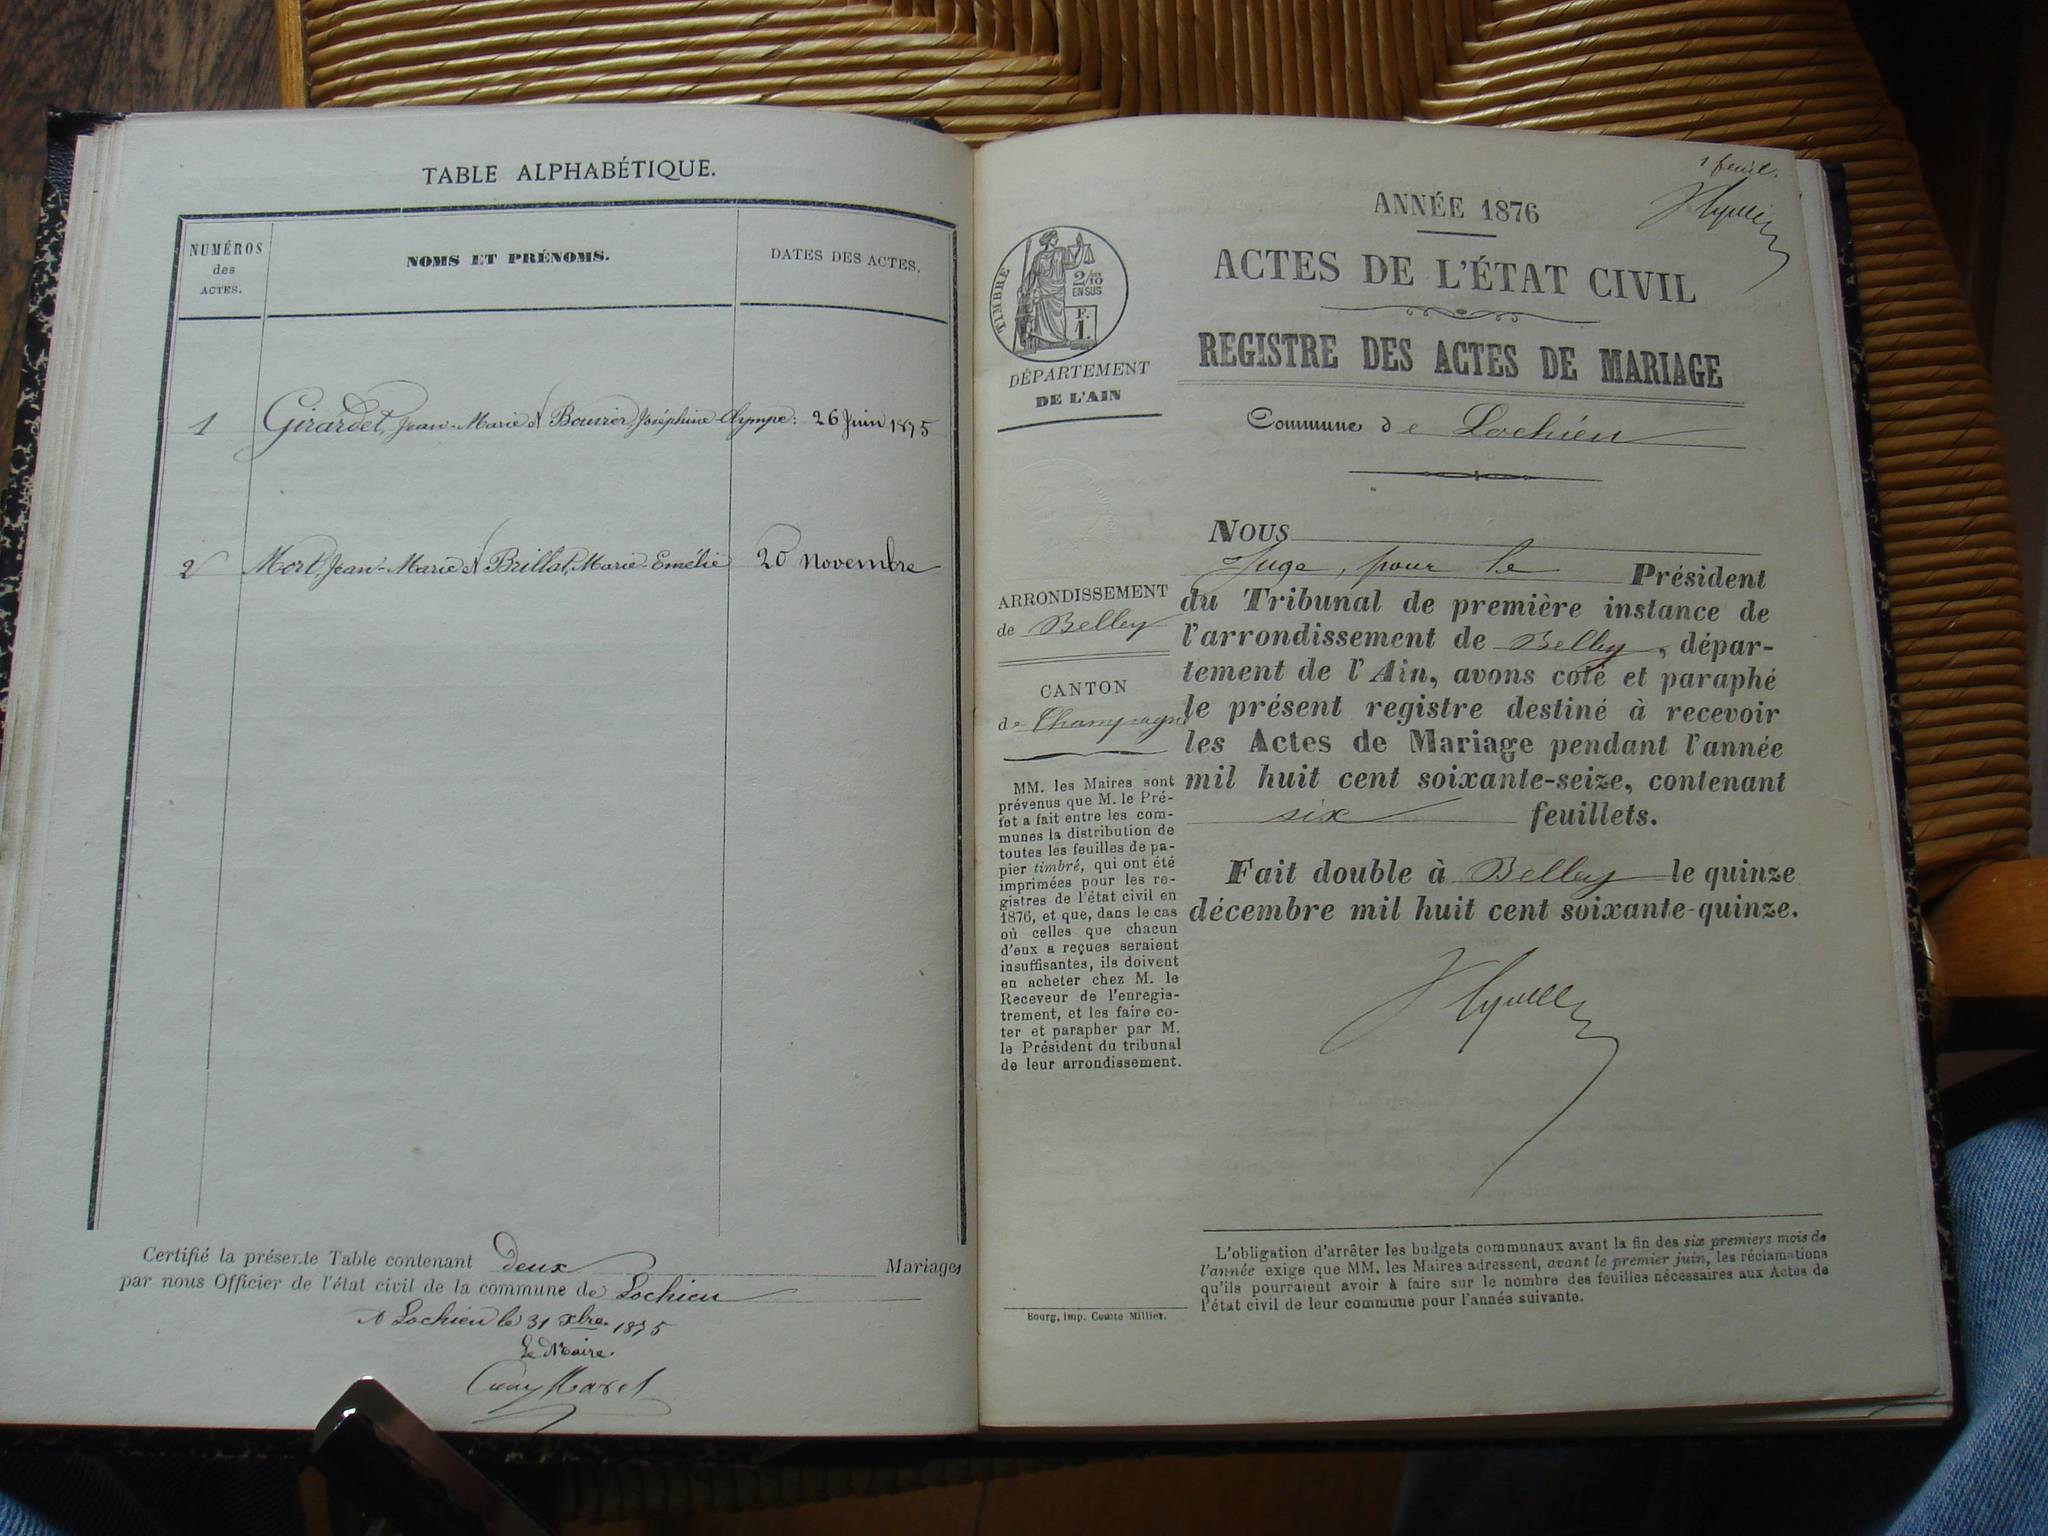 TABLE ALPHABÉTIQUE.
NUMÉROS des ACTES.
NOMS ET PRÉNOMS.
DATES DES ACTES.
1 Girardet, Jean-Marie et Bouvier, Joséphine Olympe: 26 Juin 1875
2 Mort, Jean-Marie et Brillat, Marie-Emélie 20 novembre
Certifié la présente Table contenant deux Mariages
par nous Officier de l'état civil de la commune de Lochieu
A Lochieu le 31 Xbre 1875
Le Maire.
1 feuil.
ANNÉE 1876
ACTES DE L'ÉTAT CIVIL
REGISTRE DES ACTES DE MARIAGE
Commune de Lochieu
TIMBRE
2/10
EN SUS
F.
1.
DÉPARTEMENT
DE L'AIN
ARRONDISSEMENT
de Belley
CANTON
de Champagne
MM. les Maires sont
prévenus que M. le Pré-
fet a fait entre les com-
munes la distribution de
toutes les feuilles de pa-
pier timbré, qui ont été
imprimées pour les re-
gistres de l'état civil en
1876, et que, dans le cas
où celles que chacun
d'eux a reçues seraient
insuffisantes, ils doivent
en acheter chez M. le
Receveur de l'enregis-
trement, et les faire co-
ter et parapher par M.
le Président du tribunal
de leur arrondissement.
NOUS
Juge, pour le Président
du Tribunal de première instance de
l'arrondissement de Belley, dépar-
tement de l'Ain, avons coté et paraphé
le présent registre destiné à recevoir
les Actes de Mariage pendant l'année
mil huit cent soixante-seize, contenant
six feuillets.
Fait double à Belley le quinze
décembre mil huit cent soixante-quinze.
L'obligation d'arrêter les budgets communaux avant la fin des six premiers mois de
l'année exige que MM. les Maires adressent, avant le premier juin, les réclamations
qu'ils pourraient avoir à faire sur le nombre des feuilles nécessaires aux Actes de
l'état civil de leur commune pour l'année suivante.
Bourg, imp. Comte-Milliet.